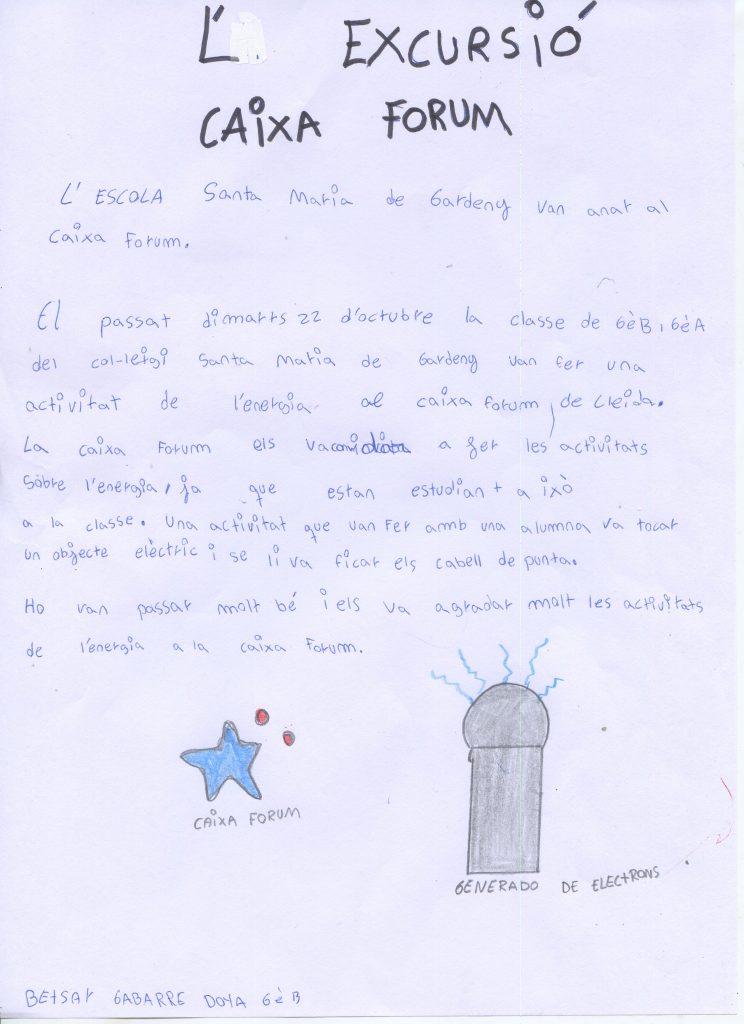 L' EXCURSIÓ
CAIXA FORUM
L' ESCOLA Santa Maria de Gardeny van anar al
Caixa Forum.
El passat dimarts 22 d'octubre la classe de 6èB i 6èA
del col·leigi Santa Maria de Gardeny van fer una
activitat de l'energia al caixa forum de Lleida.
La caixa Forum els va a fer les activitats
Sobre l'energia, ja que estan estudiant a ixò
a la classe. Una activitat que van fer amb una alumna va tocar
un objecte elèctric i se li va ficar els cabell de punta.
Ho van passar molt bé i els va agradar molt les activitats
de l'energia a la caixa Forum.
CAIXA FORUM
GENERADO DE ELECTRONS
BETSAY GABARRE DOYA 6èB